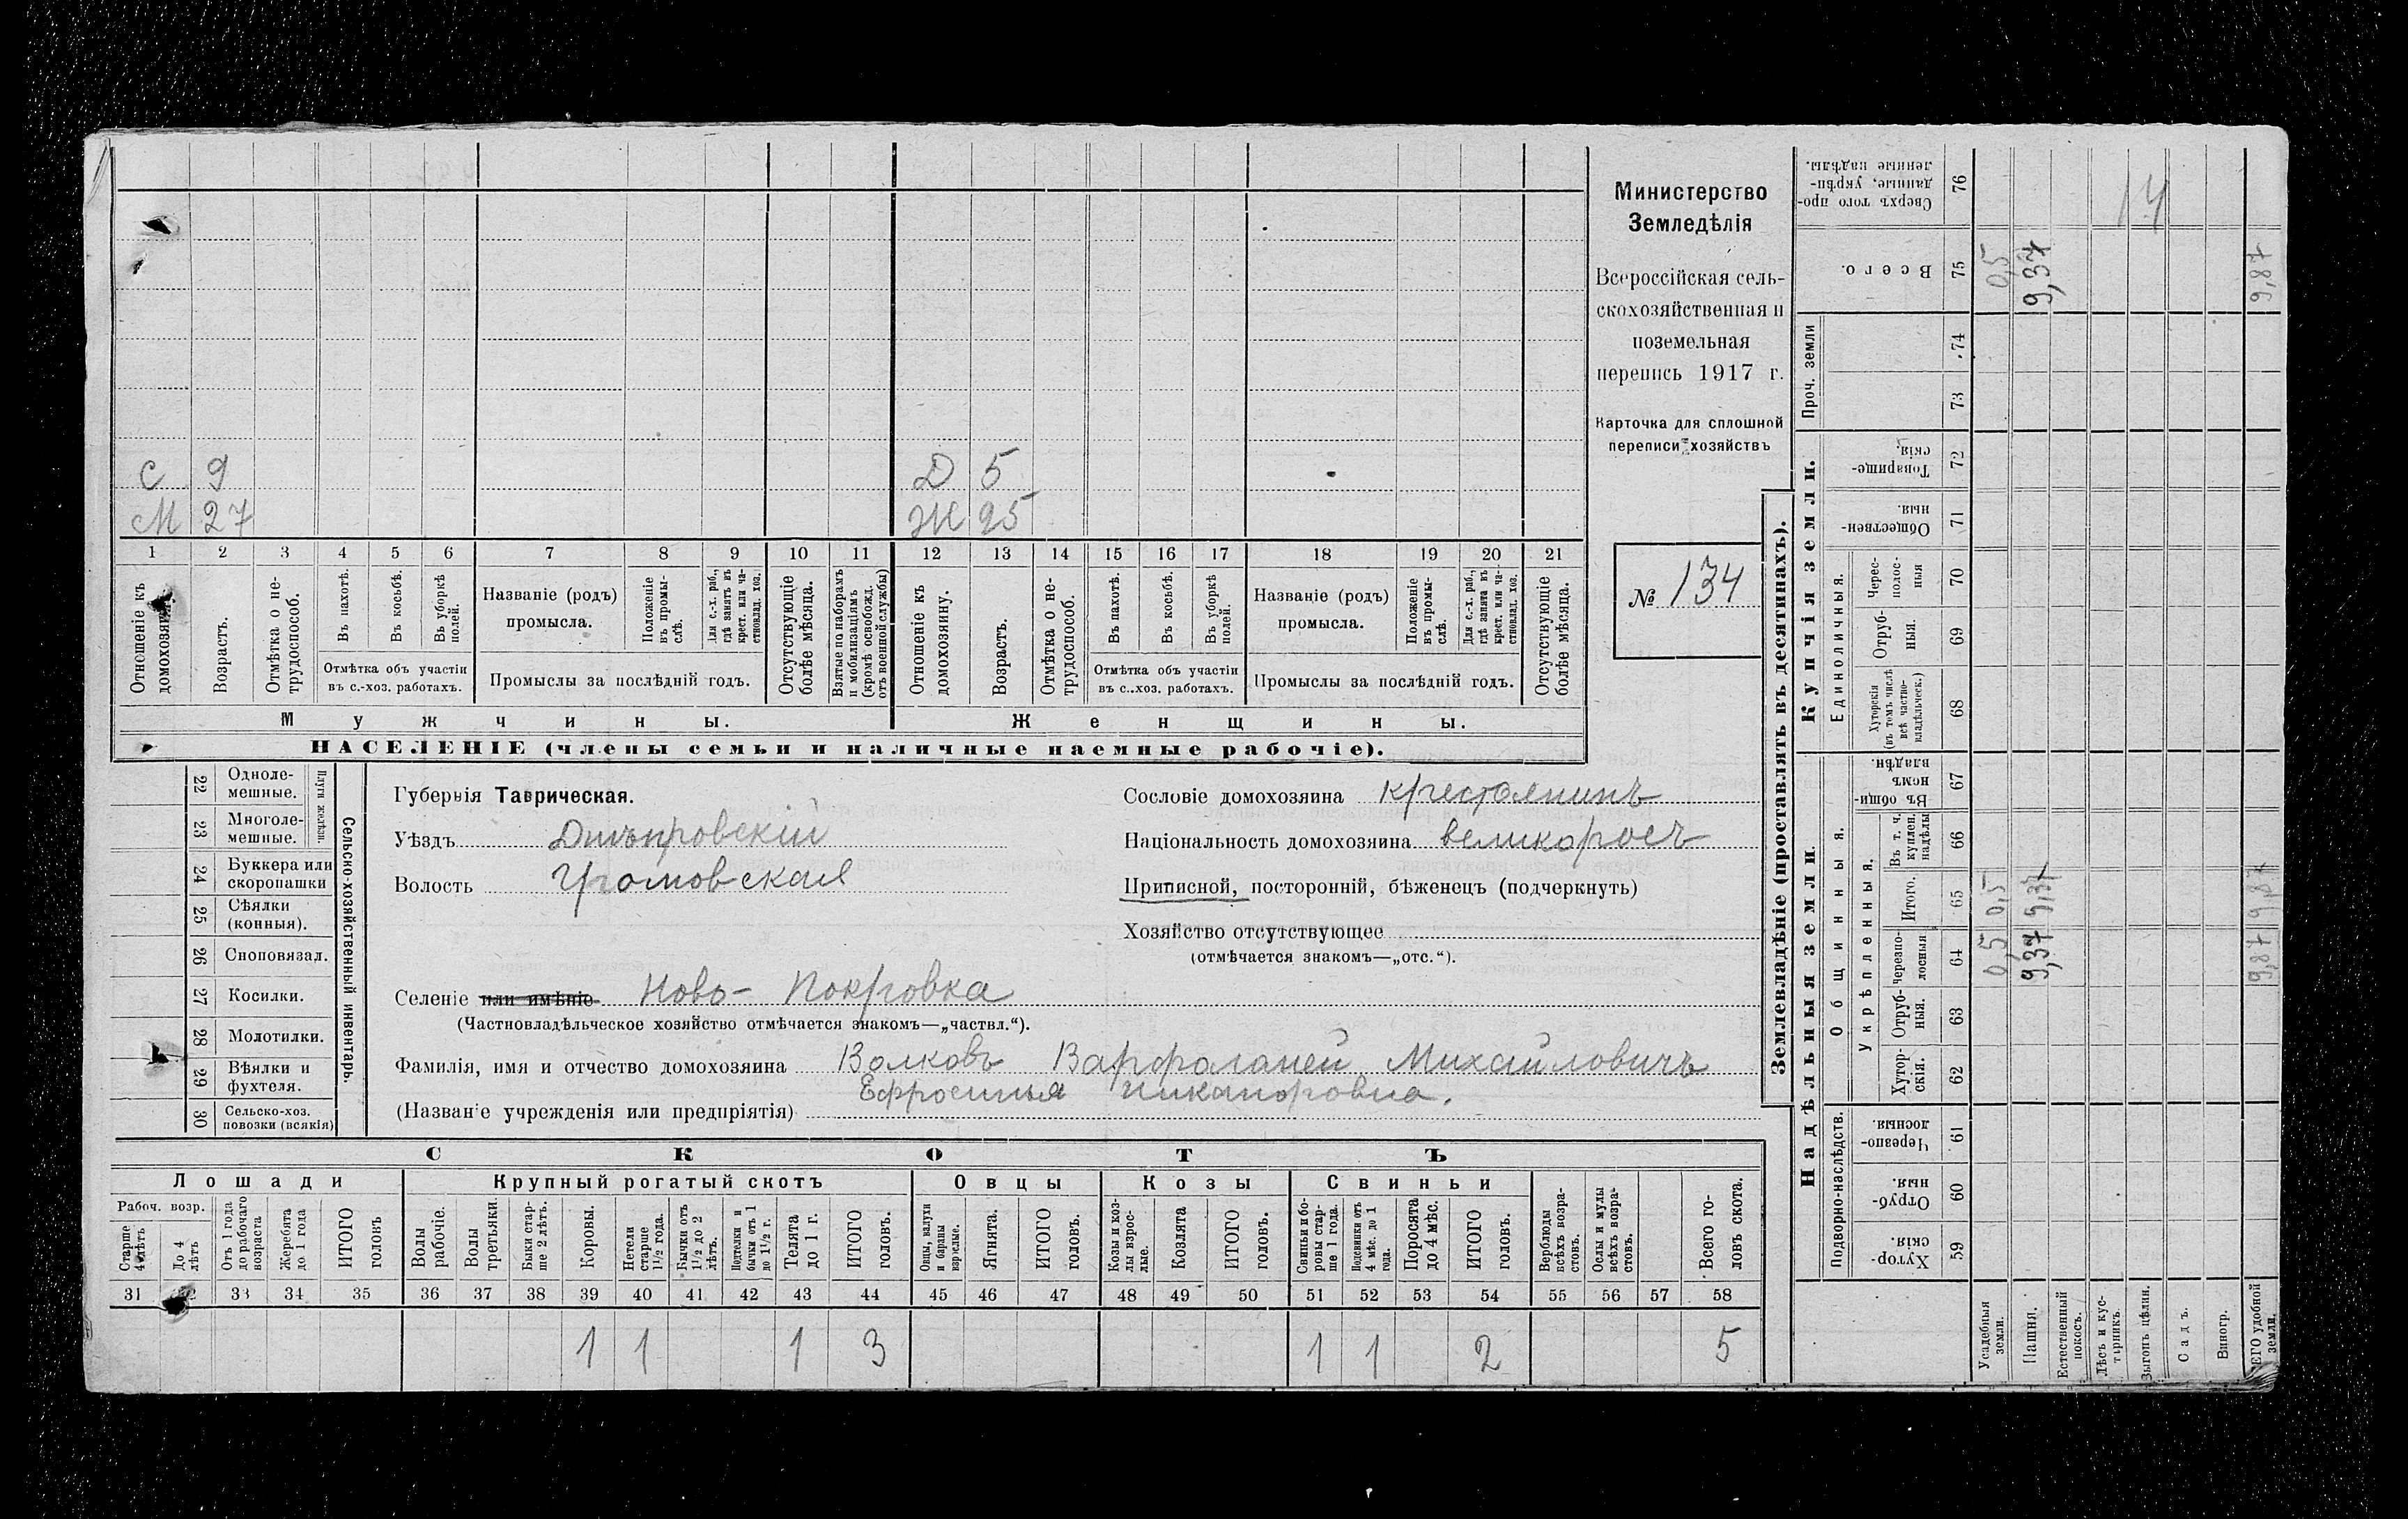 С 9 Д 5
М 27 Ж 25
1 2 3 4 5 6 7 8 9 10 11 12 13 14 15 16 17 18 19 20 21
Отношеніе къ домохозяину.
Возрастъ.
Отмѣтка о не-
трудоспособ.
Въ пахотѣ.
Въ косьбѣ.
Въ уборкѣ
полей.
Отмѣтка объ участіи
въ с.-хоз. работахъ.
Названіе (родъ)
промысла.
Положеніе
въ промы-
слѣ.
Для с.-х. раб.,
гдѣ занятъ въ
крест. или ча-
стновлад. хоз.
Промыслы за послѣдній годъ.
Отсутствующіе
болѣе мѣсяца.
Взятые по наборамъ
и мобилизаціямъ
(кромѣ освобожд.
отъ военной службы)
Отношеніе къ
домохозяину.
Возрастъ.
Отмѣтка о не-
трудоспособ.
Въ пахотѣ.
Въ косьбѣ.
Въ уборкѣ
полей.
Отмѣтка объ участіи
въ с..хоз. работахъ.
Названіе (родъ)
промысла.
Положеніе
въ промы-
слѣ.
Для с.-х. раб.,
гдѣ занята въ
крест. или ча-
стновлад. хоз.
Промыслы за послѣдній годъ.
Отсутствующіе
болѣе мѣсяца.
Мужчины. Женщины.
НАСЕЛЕНІЕ (члены семьи и наличные наемные рабочіе).
Министерство
Земледѣлія
Всероссійская сель-
скохозяйственная и
поземельная
перепись 1917 г.
Карточка для сплошной
переписи хозяйствъ
№ 134
22 Одноле-
мешные.
23 Многоле-
мешные.
Плуги желѣзн.
24 Буккера или
скоропашки
25 Сѣялки
(конныя).
26 Сноповязал.
27 Косилки.
28 Молотилки.
29 Вѣялки и
фухтеля.
30 Сельско-хоз.
повозки (всякія)
Сельско-хозяйственный инвентарь.
Губернія Таврическая.
Уѣздъ Днѣпровскій
Волость Громовская
Селеніе или имѣніе Ново- Покровка
(Частновладѣльческое хозяйство отмѣчается знакомъ—„частвл.“).
Фамилія, имя и отчество домохозяина Волковъ Варфоламей Михайловичъ
Ефросинья Никаноровна.
(Названіе учрежденія или предпріятія)
Сословіе домохозяина крестьянинъ
Національность домохозяина великороссъ
Приписной, посторонній, бѣженецъ (подчеркнуть)
Хозяйство отсутствующее
(отмѣчается знакомъ—„отс.“).
СКОТЪ
Лошади Крупный рогатый скотъ Овцы Козы Свиньи
Рабоч. возр.
Старше
4 лѣтъ
До 4
лѣтъ
Отъ 1 года
до рабочаго
возраста
Жеребята
до 1 года
ИТОГО
головъ
Волы
рабочіе.
Волы
третьяки.
Быки стар-
ше 2 лѣтъ.
Коровы.
Нетели
старше
1½ года.
Бычки отъ
1½ до 2
лѣтъ.
Подтелки и
бычки отъ 1
до 1½ г.
Телята
до 1 г.
ИТОГО
головъ.
Овцы, валухи
и бараны
взрослые.
Ягнята.
ИТОГО
головъ.
Козы и коз-
лы взрос-
лые.
Козлята
ИТОГО
головъ.
Свиньи и бо-
ровы стар-
ше 1 года.
Подсвинки отъ
4 мѣс. до 1
года.
Поросята
до 4 мѣс.
ИТОГО
головъ.
Верблюды
всѣхъ возра-
стовъ.
Ослы и мулы
всѣхъ возра-
стовъ.
Всего го-
ловъ скота.
31 32 33 34 35 36 37 38 39 40 41 42 43 44 45 46 47 48 49 50 51 52 53 54 55 56 57 58
1 1 1 3 1 1 2 5
Землевладѣніе (проставлять въ десятинахъ).
Надѣльныя земли Купчія земли.
Подворно-наслѣдств.
Общинныя.
Укрѣпленныя.
Единоличныя.
Проч. земли
Хутор-
скія. 59
Отруб-
ныя. 60
Черезпо-
лосныя. 61
Хутор-
скія. 62
Отруб-
ныя. 63
Черезпо-
лосныя 64
Итого. 65
Въ т. ч.
куплен.
надѣлы 66
Въ общи-
номъ
владѣн. 67
Хуторскія
(въ томъ числѣ
всѣ частно-
владѣльческ.) 68
Отруб-
ныя. 69
Черес-
полос-
ныя 70
Обществен-
ныя. 71
Товарище-
скія. 72
73
74
Всего. 75
Сверхъ того про-
данные, укрѣп-
ленные надѣлы. 76
Усадебныя
земли. 0,5 0,5 0,5
Пашня. 9,37 9,37 9,37
Естественный
покосъ.
Лѣсъ и кус-
тарникъ.
Выгонъ цѣлин.
Садъ.
Виногр.
ВСЕГО удобной
земли. 9,87 9,87 9,87
14